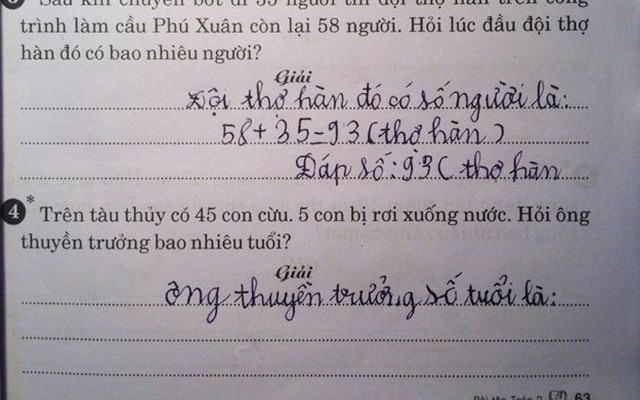 Sau khi chuyển bớt đi 35 người thì đội thợ hàn trên công
trình làm cầu Phú Xuân còn lại 58 người. Hỏi lúc đầu đội thợ
hàn đó có bao nhiêu người?
Giải
Đội thợ hàn đó có số người là:
58 + 35 = 93 (thợ hàn)
Đáp số: 93 ( thợ hàn
4* Trên tàu thủy có 45 con cừu. 5 con bị rơi xuống nước. Hỏi ông
thuyền trưởng bao nhiêu tuổi?
Giải
Ông thuyền trưởng số tuổi là:
63